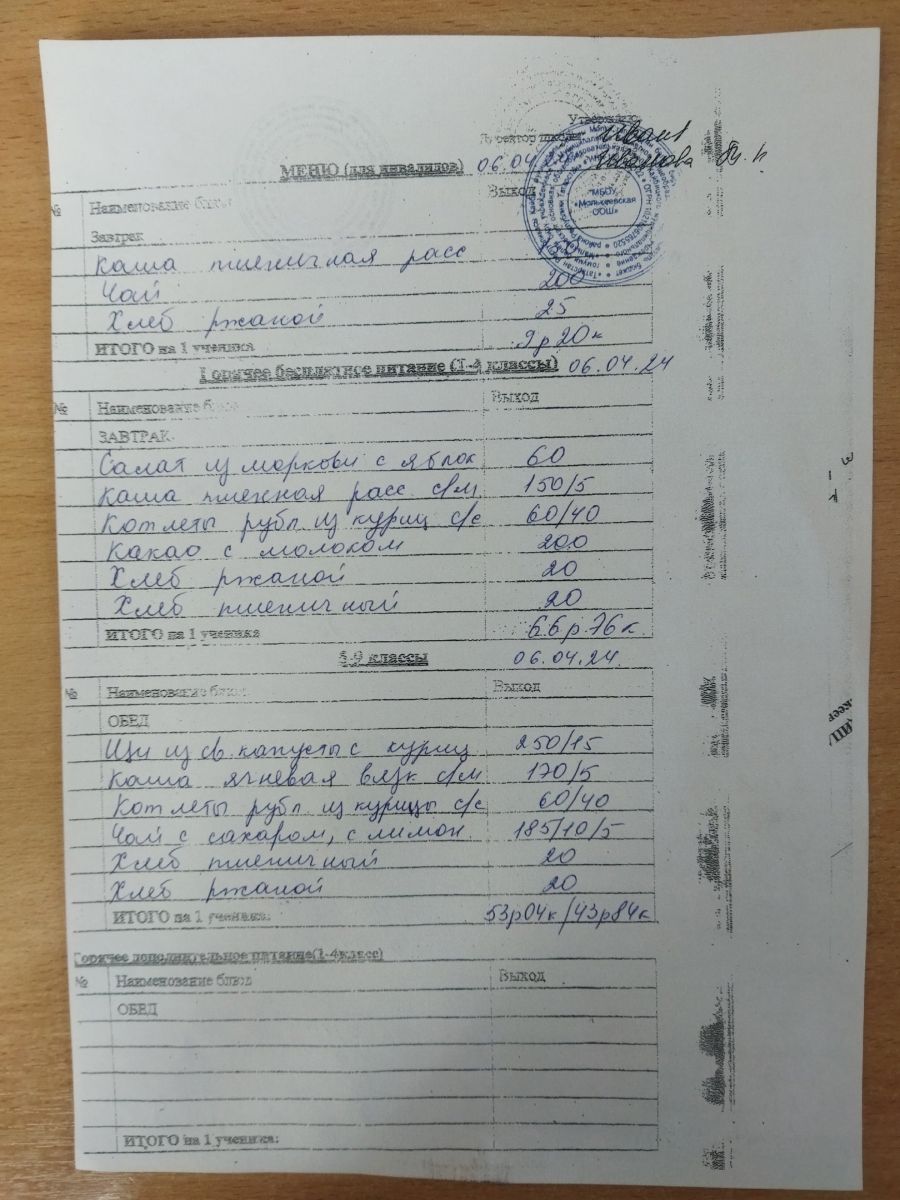 Утверждаю
Директор школы
МЕНЮ (для инвалидов) 06.04.24
"МБОУ
«Молькеевская
ООШ»
№ Наименование блюд Выход
Завтрак
Каша пшеничная расс
Чай 200
Хлеб ржаной 25
ИТОГО на 1 ученика 9р20к
Горячее бесплатное питание (1-4 классы) 06.04.24
№ Наименование блюд Выход
ЗАВТРАК
Салат из моркови с яблок 60
Каша пшенная расс с/м 150/5
Котлеты рубл из куриц с/с 60/40
Какао с молоком 200
Хлеб ржаной 20
Хлеб пшеничный 20
ИТОГО на 1 ученика 66р76к
5-9 классы 06.04.24
№ Наименование блюд Выход
ОБЕД
Щи из св. капусты с куриц 250/15
Каша ячневая вязк с/м 170/5
Котлеты рубл из курицы с/с 60/40
Чай с сахаром, с лимон 185/10/5
Хлеб пшеничный 20
Хлеб ржаной 20
ИТОГО на 1 ученика: 53р04к/43р84к
Горячее дополнительное питание(1-4класс)
№ Наименование блюд Выход
ОБЕД
ИТОГО на 1 ученика: